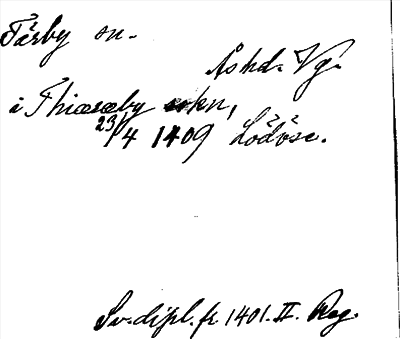 Färby sn.
Åshd. Vg.
i Thiæræby sokn,
23/4 1409 Lödöse.
Sv. dipl. fr. 1401. II. Reg.